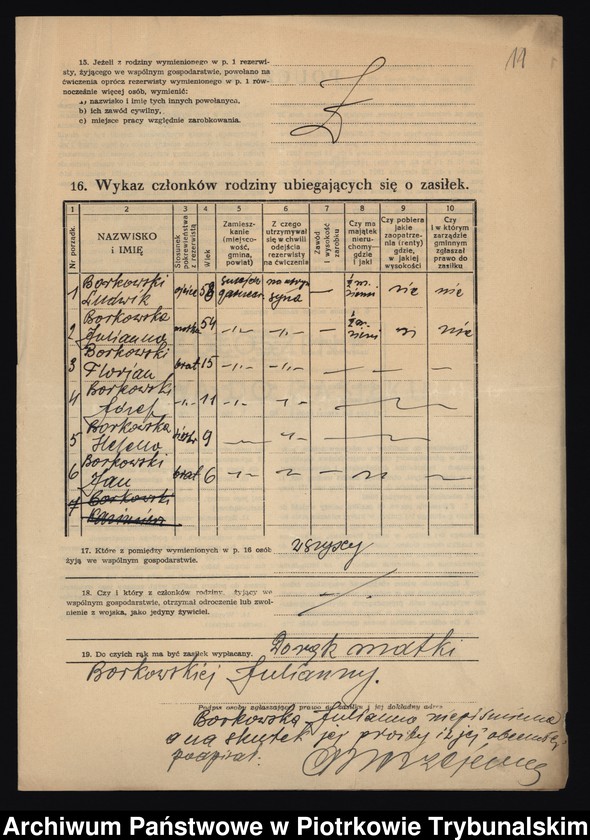 19
15. Jeżeli z rodziny wymienionego w p. 1 rezerwi-
sty, żyjącego we wspólnym gospodarstwie, powołano na
ćwiczenia oprócz rezerwisty wymienionego w p. 1 rów-
nocześnie więcej osób, wymienić:
a) nazwisko i imię tych innych powołanych,
b) ich zawód cywilny,
c) miejsce pracy względnie zarobkowania.
16. Wykaz członków rodziny ubiegających się o zasiłek.
1 2 3 4 5 6 7 8 9 10
Nr porządk.
NAZWISKO
i IMIĘ
Stosunek
pokrewieństwa
z rezerwistą
Wiek
Zamiesz-
kanie
(miejsco-
wość,
gmina,
powiat)
Z czego
utrzymywał
się w chwili
odejścia
rezerwisty
na ćwiczenia
Zawód
i wysokość
zarobku
Czy ma
majątek
nierucho-
my—
gdzie
i jaki
Czy pobiera
jakie
zaopatrze-
nia (renty)
gdzie,
w jakiej
wysokości
Czy
i w którym
zarządzie
gminnym
zgłaszał
prawo do
zasiłku
1 Borkowski
Ludwik ojciec 58 syna — nie nie
2 Borkowska
Julianna matka 54 -"- -"- — nie
3 Borkowski
Florjan brat 15 -"- -"- — — — —
4 Borkowski
Józef -"- 11 -"- -"- —
5 Borkowska
Helena siostra 9 — -"- —
6 Borkowski
Jan brat 6 -"- — —
7 Borkowski
Kazimierz
17. Które z pomiędzy wymienionych w p. 16 osób
żyją we wspólnym gospodarstwie.
wszyscy
18. Czy i który z członków rodziny, żyjący we
wspólnym gospodarstwie, otrzymał odroczenie lub zwol-
nienie z wojska, jako jedyny żywiciel.
19. Do czyich rąk ma być zasiłek wypłacany.
Do rąk matki
Borkowskiej Julianny.
Podpis osoby zgłaszającej prawo do zasiłku i jej dokładny adres
Borkowska Julianna niepiśmienna
a na skutek jej prośby i w jej obecności
podpisał:
Archiwum Państwowe w Piotrkowie Trybunalskim